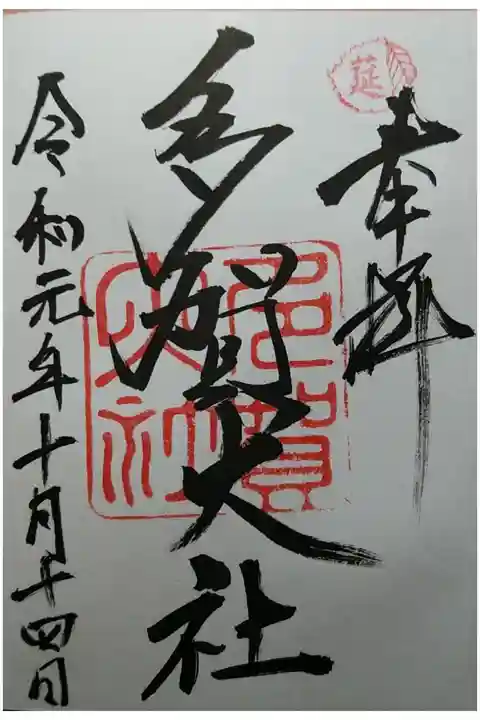 莚
奉拝
多賀大社
多賀大社
令和元年十月十四日